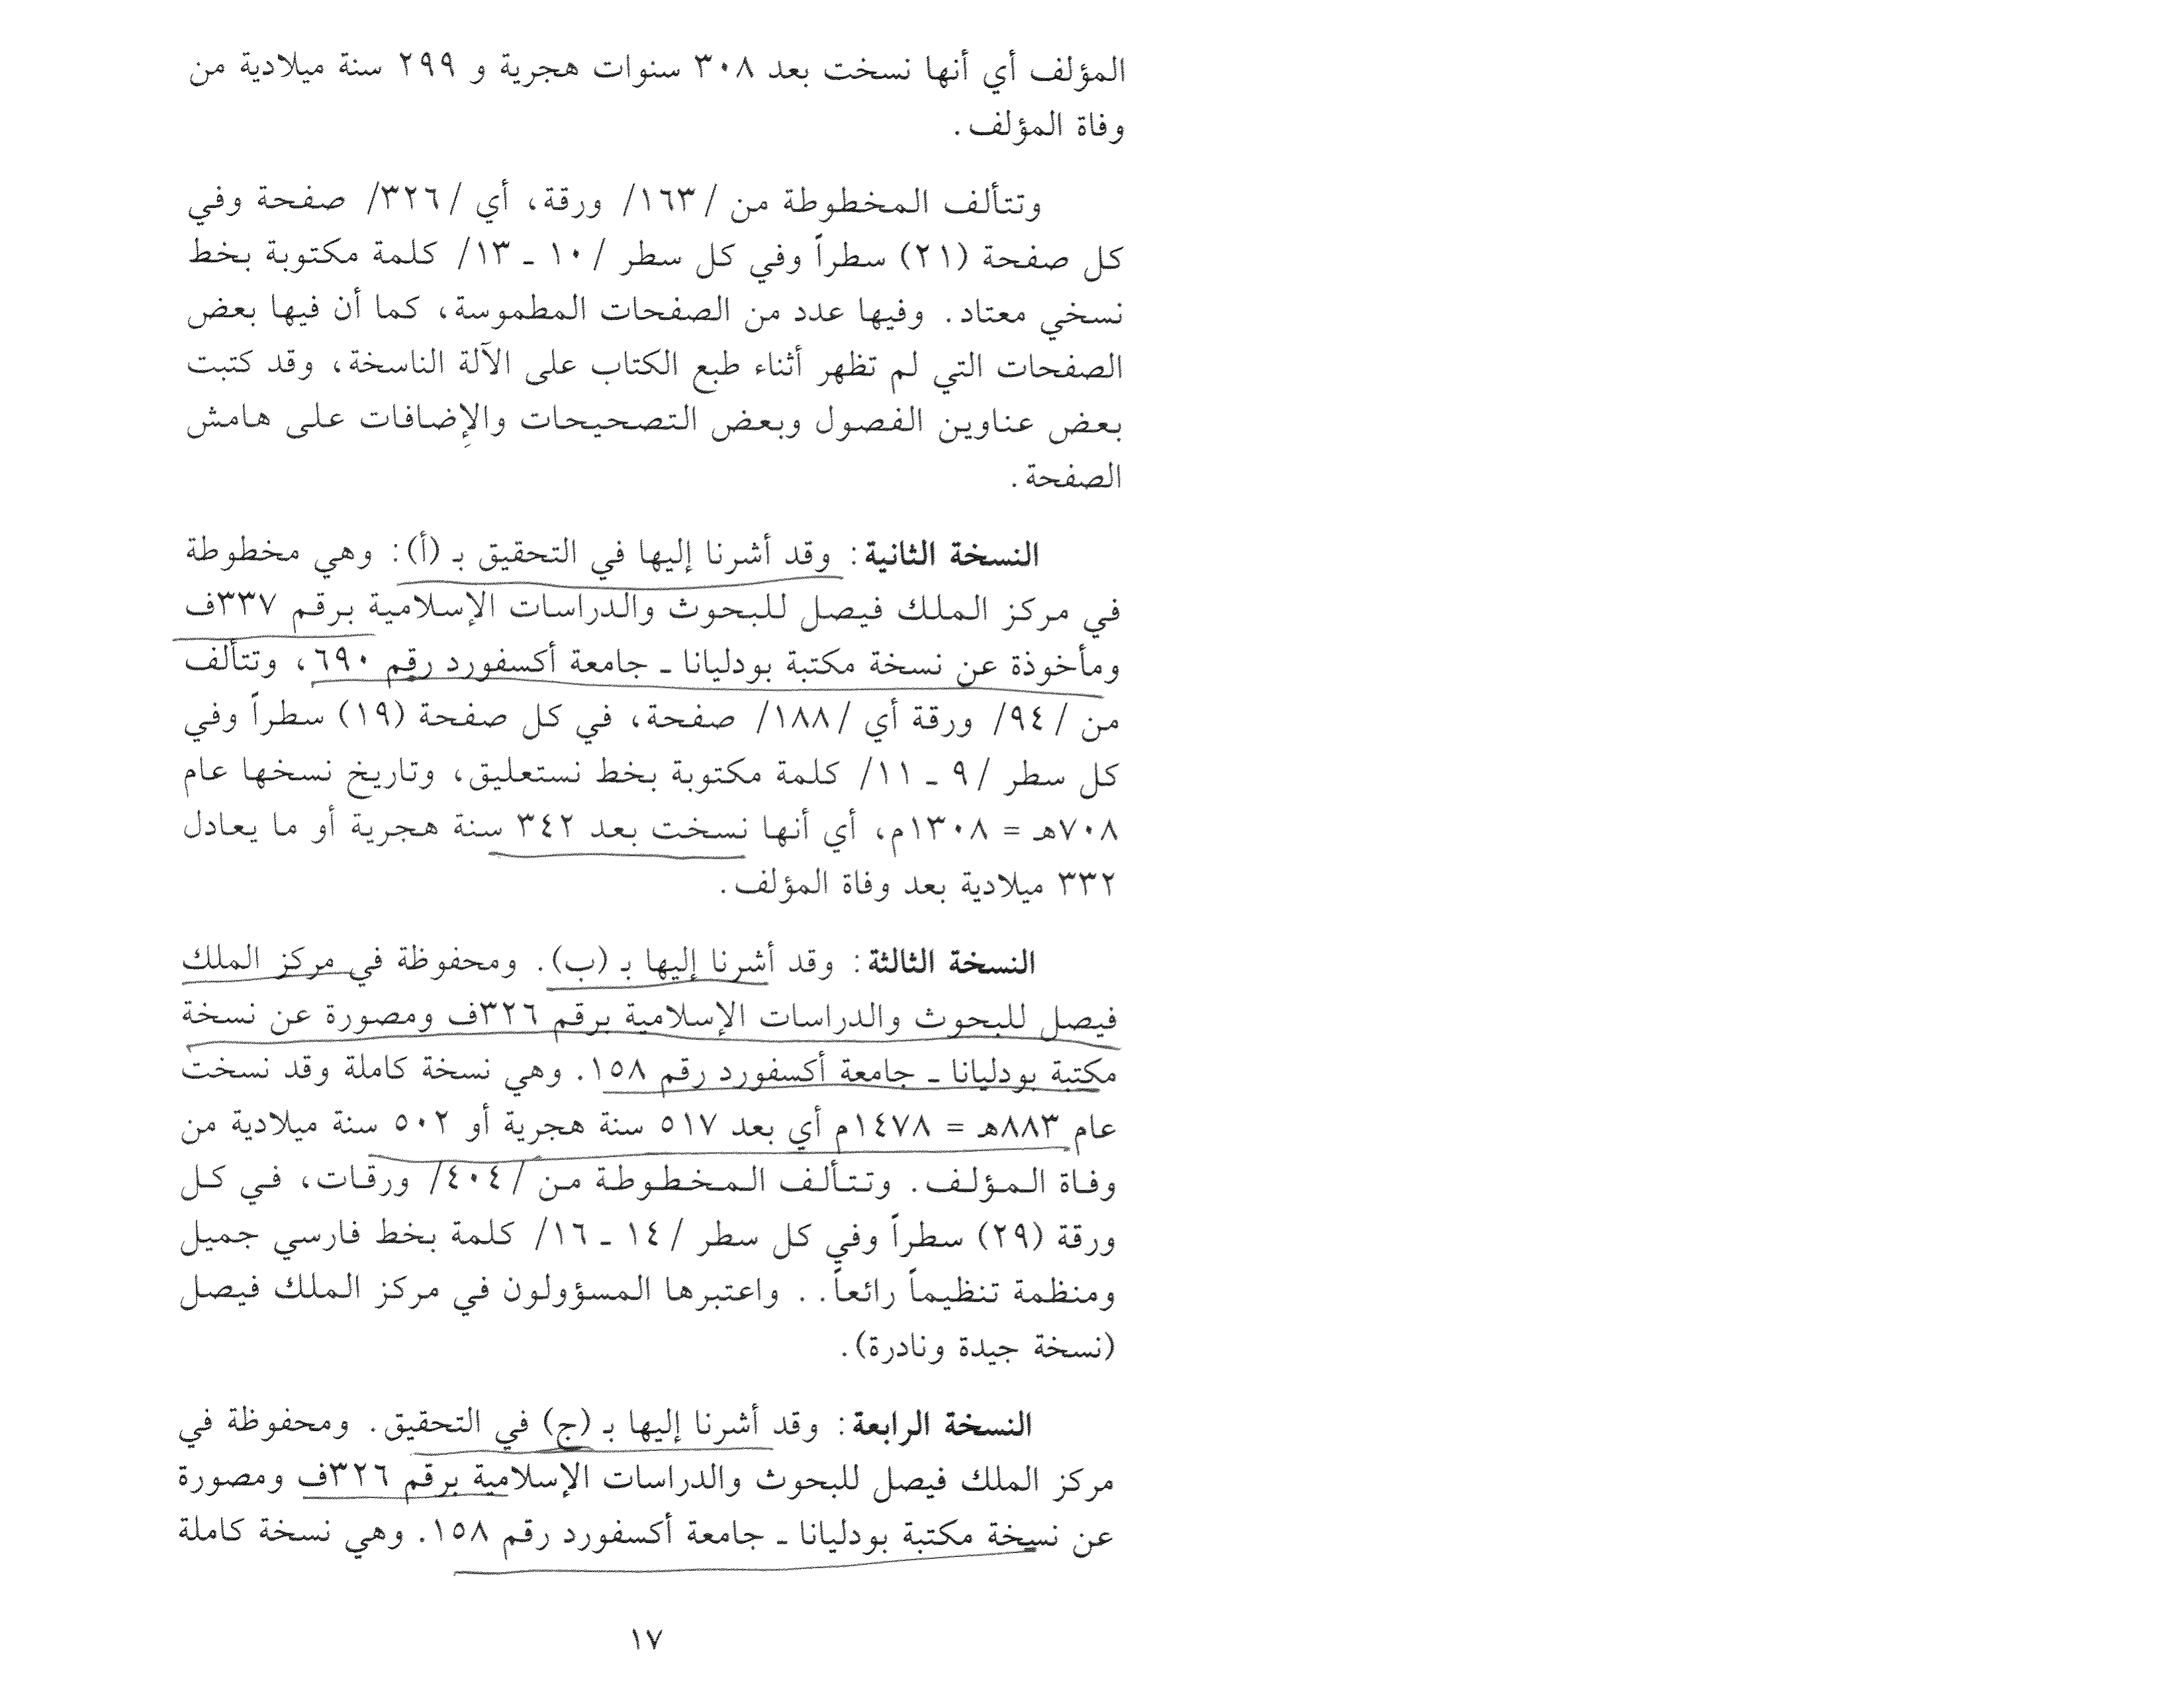 المؤلف أي أنها نسخت بعد ٣٠٨ سنوات هجرية و ٢٩٩ سنة ميلادية من
وفاة المؤلف.
وتتألف المخطوطة من /١٦٣/ ورقة، أي /٣٢٦/ صفحة وفي
كل صفحة (٢١) سطراً وفي كل سطر /١٠ ـ ١٣/ كلمة مكتوبة بخط
نسخي معتاد. وفيها عدد من الصفحات المطموسة، كما أن فيها بعض
الصفحات التي لم تظهر أثناء طبع الكتاب على الآلة الناسخة، وقد كتبت
بعض عناوين الفصول وبعض التصحيحات والإِضافات على هامش
الصفحة.
النسخة الثانية: وقد أشرنا إليها في التحقيق بـ (أ): وهي مخطوطة
في مركز الملك فيصل للبحوث والدراسات الإسلامية برقم ٣٣٧ف
ومأخوذة عن نسخة مكتبة بودليانا ـ جامعة أكسفورد رقم ٦٩٠، وتتألف
من /٩٤/ ورقة أي /١٨٨/ صفحة، في كل صفحة (١٩) سطراً وفي
كل سطر /٩ ـ ١١/ كلمة مكتوبة بخط نستعليق، وتاريخ نسخها عام
٧٠٨هـ = ١٣٠٨م، أي أنها نسخت بعد ٣٤٢ سنة هجرية أو ما يعادل
٣٣٢ ميلادية بعد وفاة المؤلف.
النسخة الثالثة: وقد أشرنا إليها بـ (ب). ومحفوظة في مركز الملك
فيصل للبحوث والدراسات الإسلامية برقم ٣٢٦ف ومصورة عن نسخة
مكتبة بودليانا ـ جامعة أكسفورد رقم ١٥٨. وهي نسخة كاملة وقد نسخت
عام ٨٨٣هـ = ١٤٧٨م أي بعد ٥١٧ سنة هجرية أو ٥٠٢ سنة ميلادية من
وفاة المؤلف. وتتألف المخطوطة من /٤٠٤/ ورقات، في كل
ورقة (٢٩) سطراً وفي كل سطر /١٤ ـ ١٦/ كلمة بخط فارسي جميل
ومنظمة تنظيماً رائعاً.. واعتبرها المسؤولون في مركز الملك فيصل
(نسخة جيدة ونادرة).
النسخة الرابعة: وقد أشرنا إليها بـ (ج) في التحقيق. ومحفوظة في
مركز الملك فيصل للبحوث والدراسات الإسلامية برقم ٣٢٦ف ومصورة
عن نسخة مكتبة بودليانا ـ جامعة أكسفورد رقم ١٥٨. وهي نسخة كاملة
١٧